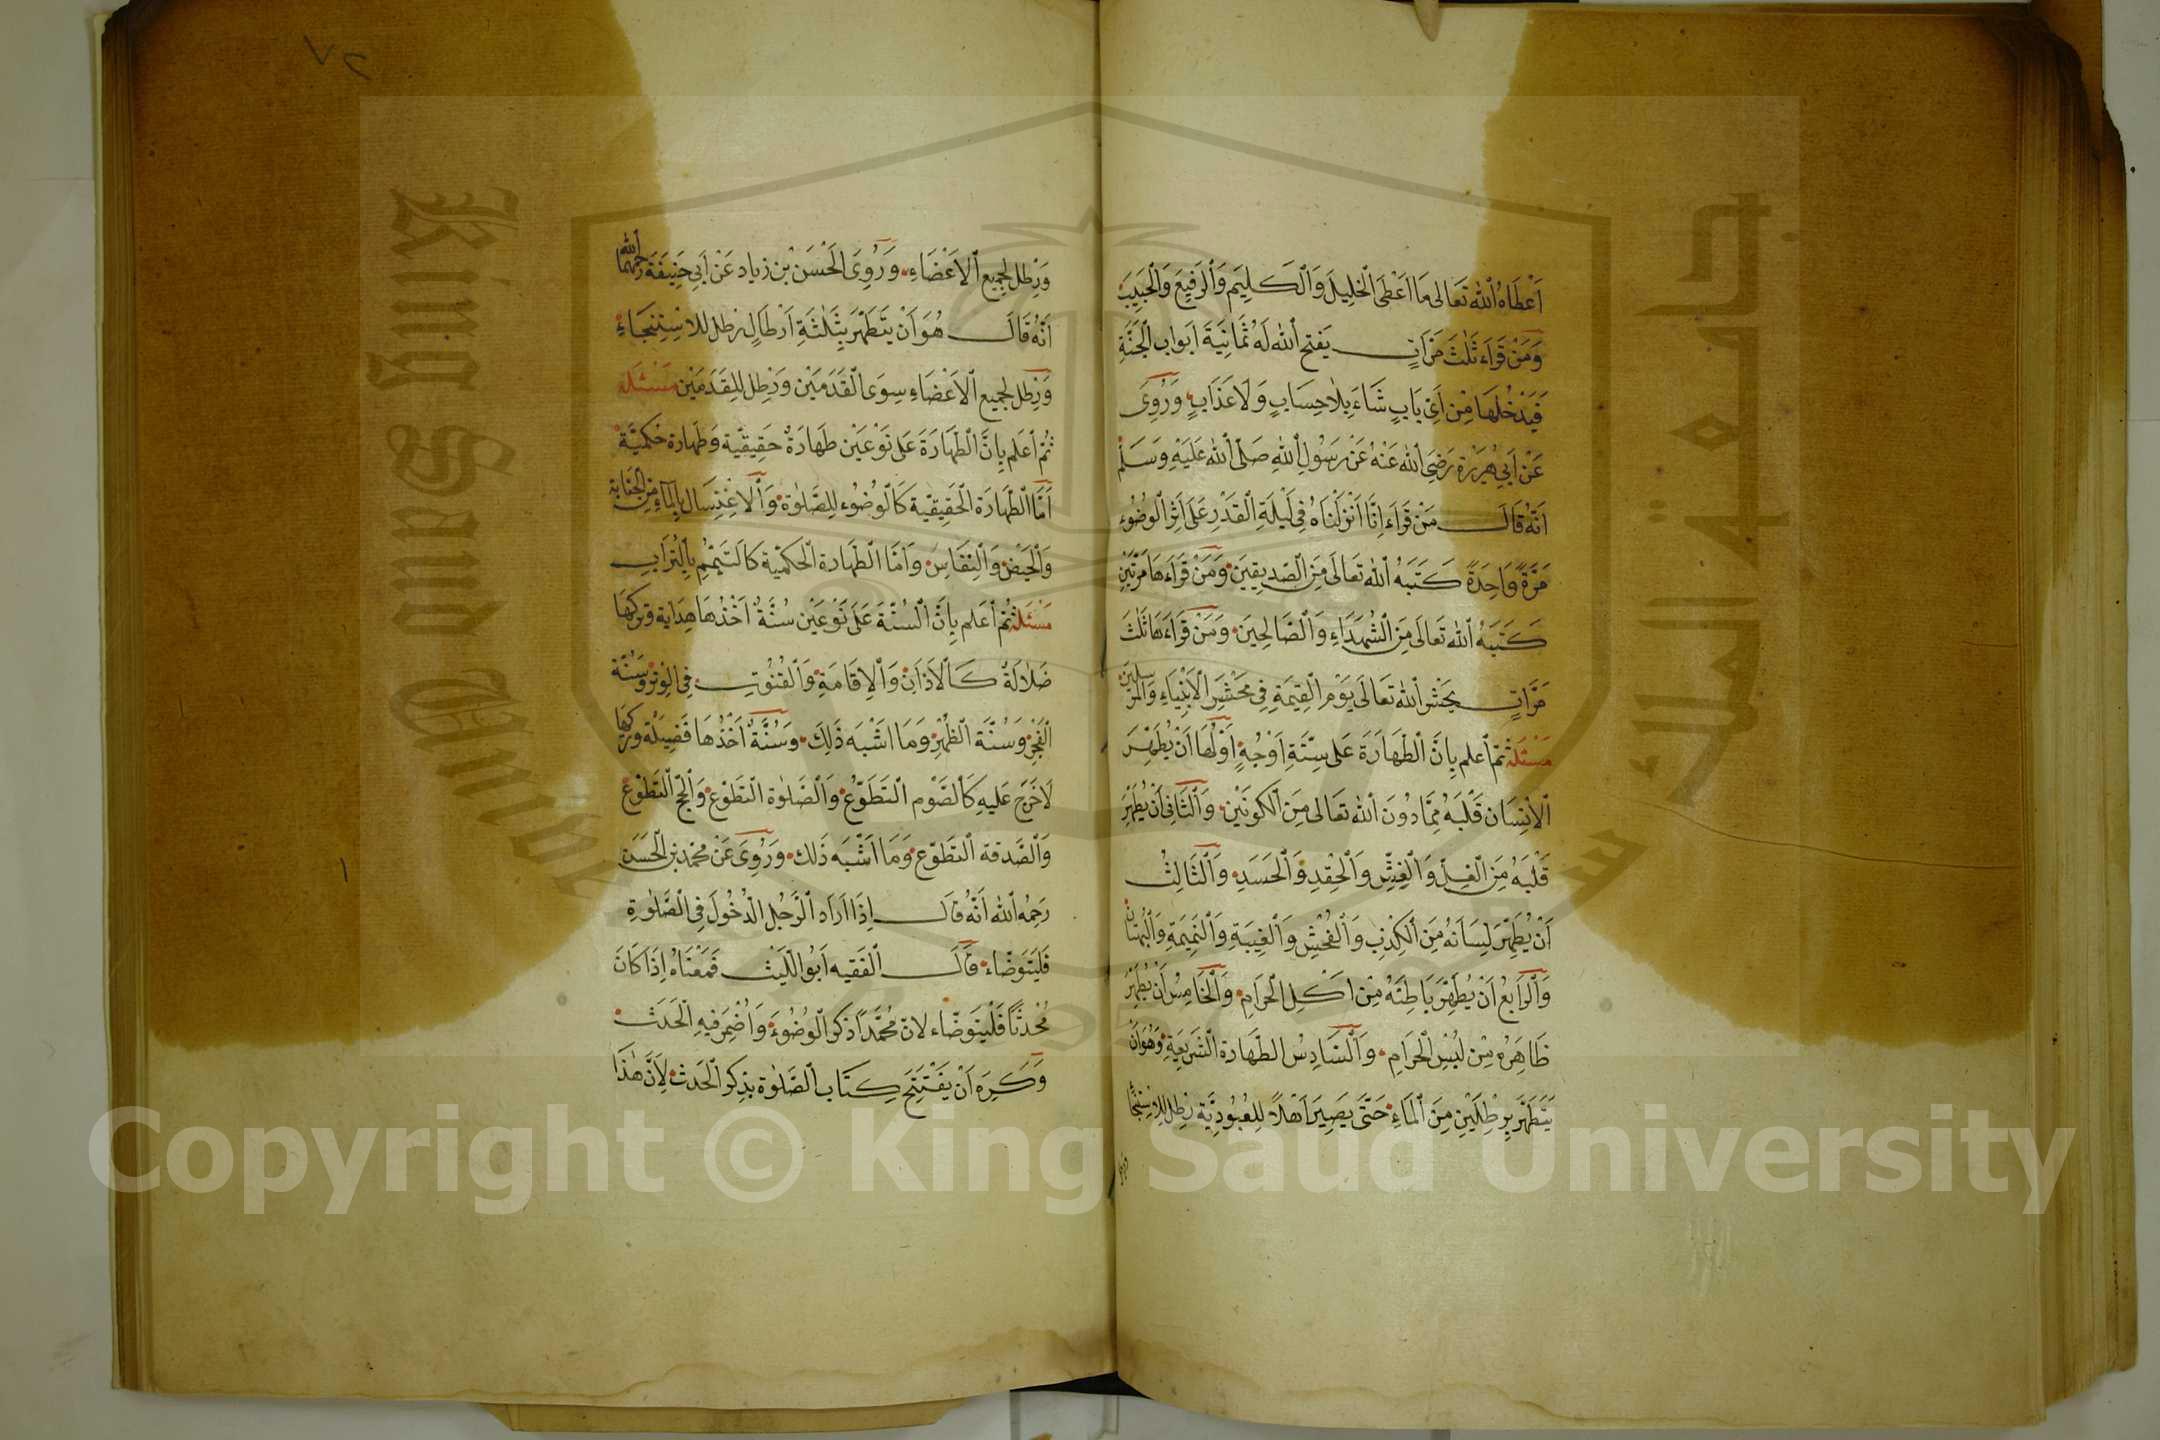 اَعْطَاهُ اللّٰه تَعَالى مَا اَعْطَى الْخَلِيلَ وَالْكَلِيمَ وَالرَّفِيعَ وَالْحَبِيبَ
وَمَنْ قَرَاَءَ ثَلٰثَ مَرَّاتٍ يَفتح اللّٰه لَهُ ثَمَانِيَةَ اَبْوابِ الْجَنَّةِ
فَيَدْخُلُهَا مِنْ اَىّ بَابٍ شَاءَ بِلَاحِسَابٍ وَلَاعَذَابٍ وَرُوِىَ
عَنْ اَبِى هُرَيْرَة رَضِىَ اللّٰه عَنْهُ عَنْ رَسُولِ اللّٰهِ صَلَّى اللّٰه عَلَيْهِ وَسَلَّمْ
اَنّهُ قَالَ مَنْ قَرَاَءَ اِنَّا اَنْزَلْنَاهُ فِى لَيْلَةِ الْقَدْرِ عَلَى اَثَرِ الْوُضُوءِ
مَرَّةً وَاحِدَةً كَتَبَهُ اللّٰه تَعَالَى مِنَ الصّدِيقِينَ وَمَنْ قَرَاَءَهَا مَرَّتَيْنِ
كَتَبَهُ اللّٰه تَعَالَى مِنَ الشُّهَدَاءِ وَالصَّالِحِينَ وَمَنْ قَرَاَءَهَا ثَلٰثَ
مَرَّاتٍ يحْشر اللّٰه تَعَالَى يَوْمَ الْقِيمَةِ فِى مَحْشَرِ الْاَنْبِيَاءِ وَالْمُرْسَلِينَ
مَسْئَلَة ثمّ اَعلم بِاَنَّ الطَّهَارَةَ عَلى سِتَّةِ اَوْجُهٍ اَوّلُهَا اَنْ يُطَهِّرَ
الْاِنْسَان قَلْبَهُ مِمَّا دُونَ اللّٰه تَعَالى مِنَ الْكَونَيْنِ وَالثَّانِى اَنْ يُطَهِّرَ
قَلْبَهُ مِنَ الْغِلِّ وَالْغِشِّ وَالْحِقدِ وَالْحَسَدِ وَالثَّالِثُ
اَنْ يُطَهِّرَ لِسَانَهُ مِنَ الْكِذْبِ وَالْفُحْشِ وَالْغِيبَةِ وَالنَّمِيمَةِ وَالْبُهْتَانِ
وَالرَّابِعُ اَنْ يُطَهِّرَ بَاطِنَهُ مِنْ اَكْلِ الْحَرَامِ وَالْخَامِسُ اَنْ يُطَهِّرَ
ظَاهِرَهُ مِنْ لُبْسِ الْحَرَامِ وَالسَّادِسُ الطَّهَارَة الشَّرِيعَةِ وَهُوَ اَنْ
يَتَطَهَّرَ بِرِطْلَيْنِ مِنَ الْمَاءِ حَتَّى يَصِيرَ اَهْلًا لِلْعُبُودِيَّة رِطل لِلاسْتِنْجَاء
ورطل
٧٢
وَرِطل لِجَمِيع الْاَعْضَاءِ وَرُوِىَ الْحَسَن بْن زِيَاد عَنْ اَبِى حَنِيفَةَ رَحِمَهُمَا اللّٰه
اَنَّهُ قَالَ هُوَ اَنْ يَتَطَهَّرَ بِثَلٰثَةِ اَرْطَالٍ رِطل لِلاسْتِنْجَاءِ
وَرِطل لِجَمِيع الْاَعْضَاءِ سِوَى الْقَدَمَيْنِ وَرِطل لِلْقَدَمَيْن مَسْئَلَة
ثُمّ اَعلم بِاَنَّ الطَّهَارَةَ عَلى نَوْعَيْن طَهَارَةٌ حَقِيقيّة وَطهَارة حكميَّة
اَمَّا الطَّهَارَة الْحَقِيقيّة كَالْوُضُوء لِلصَّلوٰة وَالْاغْتِسَال بِالْمَاءِ مِنَ الْجَنَابة
وَالْحَيْضِ وَالنِّفَاسِ وَاَمَّا الطّهَارة الْحكميّة كَالتَيَمُّمِ بِالتُرَابِ
مَسْئَلَة ثُمّ اَعلم بِاَنَّ السُنَّةَ عَلَى نَوْعَيْن سُنَّةٌ اَخْذُهَا هِدَاية وَتركهَا
ضَلَالَةٌ كَالْاَذَانِ وَالْاِقَامَةِ وَالْقُنُوتِ فِى الوِتْرِ وَسُنَّة
الْفَجْرِ وَسُنَّة الظُهْرِ وَمَا اَشْبَه ذَلِكَ وَسُنَّةٌ اَخْذُهَا فَضِيلَة وَتركهَا
لَاحَرَجَ عَليهِ كَالصَّوْمِ التَطَوّعِ وَالصَّلوٰة التَطَوّعِ وَالْحَجّ التَّطَوّع
وَالصَّدقة التَطَوّع وَمَا اَشْبَه ذَلك وَرُوِىَ عَنْ مُحَمّد بن الْحَسَن
رَحِمَهُ اللّٰه اَنَّهُ قَالَ اِذَا اَرَادَ الرَّجُل الدّخُولَ فِى الصَّلوٰةِ
فَليَتَوَضَّاء قَالَ الْفَقِيه اَبُو اللَّيْث فَمَعْنَاهُ اِذَا كَانَ
مُحْدثًا فَلْيَتَوَضَّاء لانّ مُحَمَّدًا ذكر الْوُضُوءَ وَاَضْمَرَ فِيهِ الْحَدَث
وَكَرِهَ اَنْ يَفْتَتِحَ كِتَاب الصَّلوٰة بذِكر الْحَدَث لِاَنَّ هٰذَا
Copyright © King Saud University